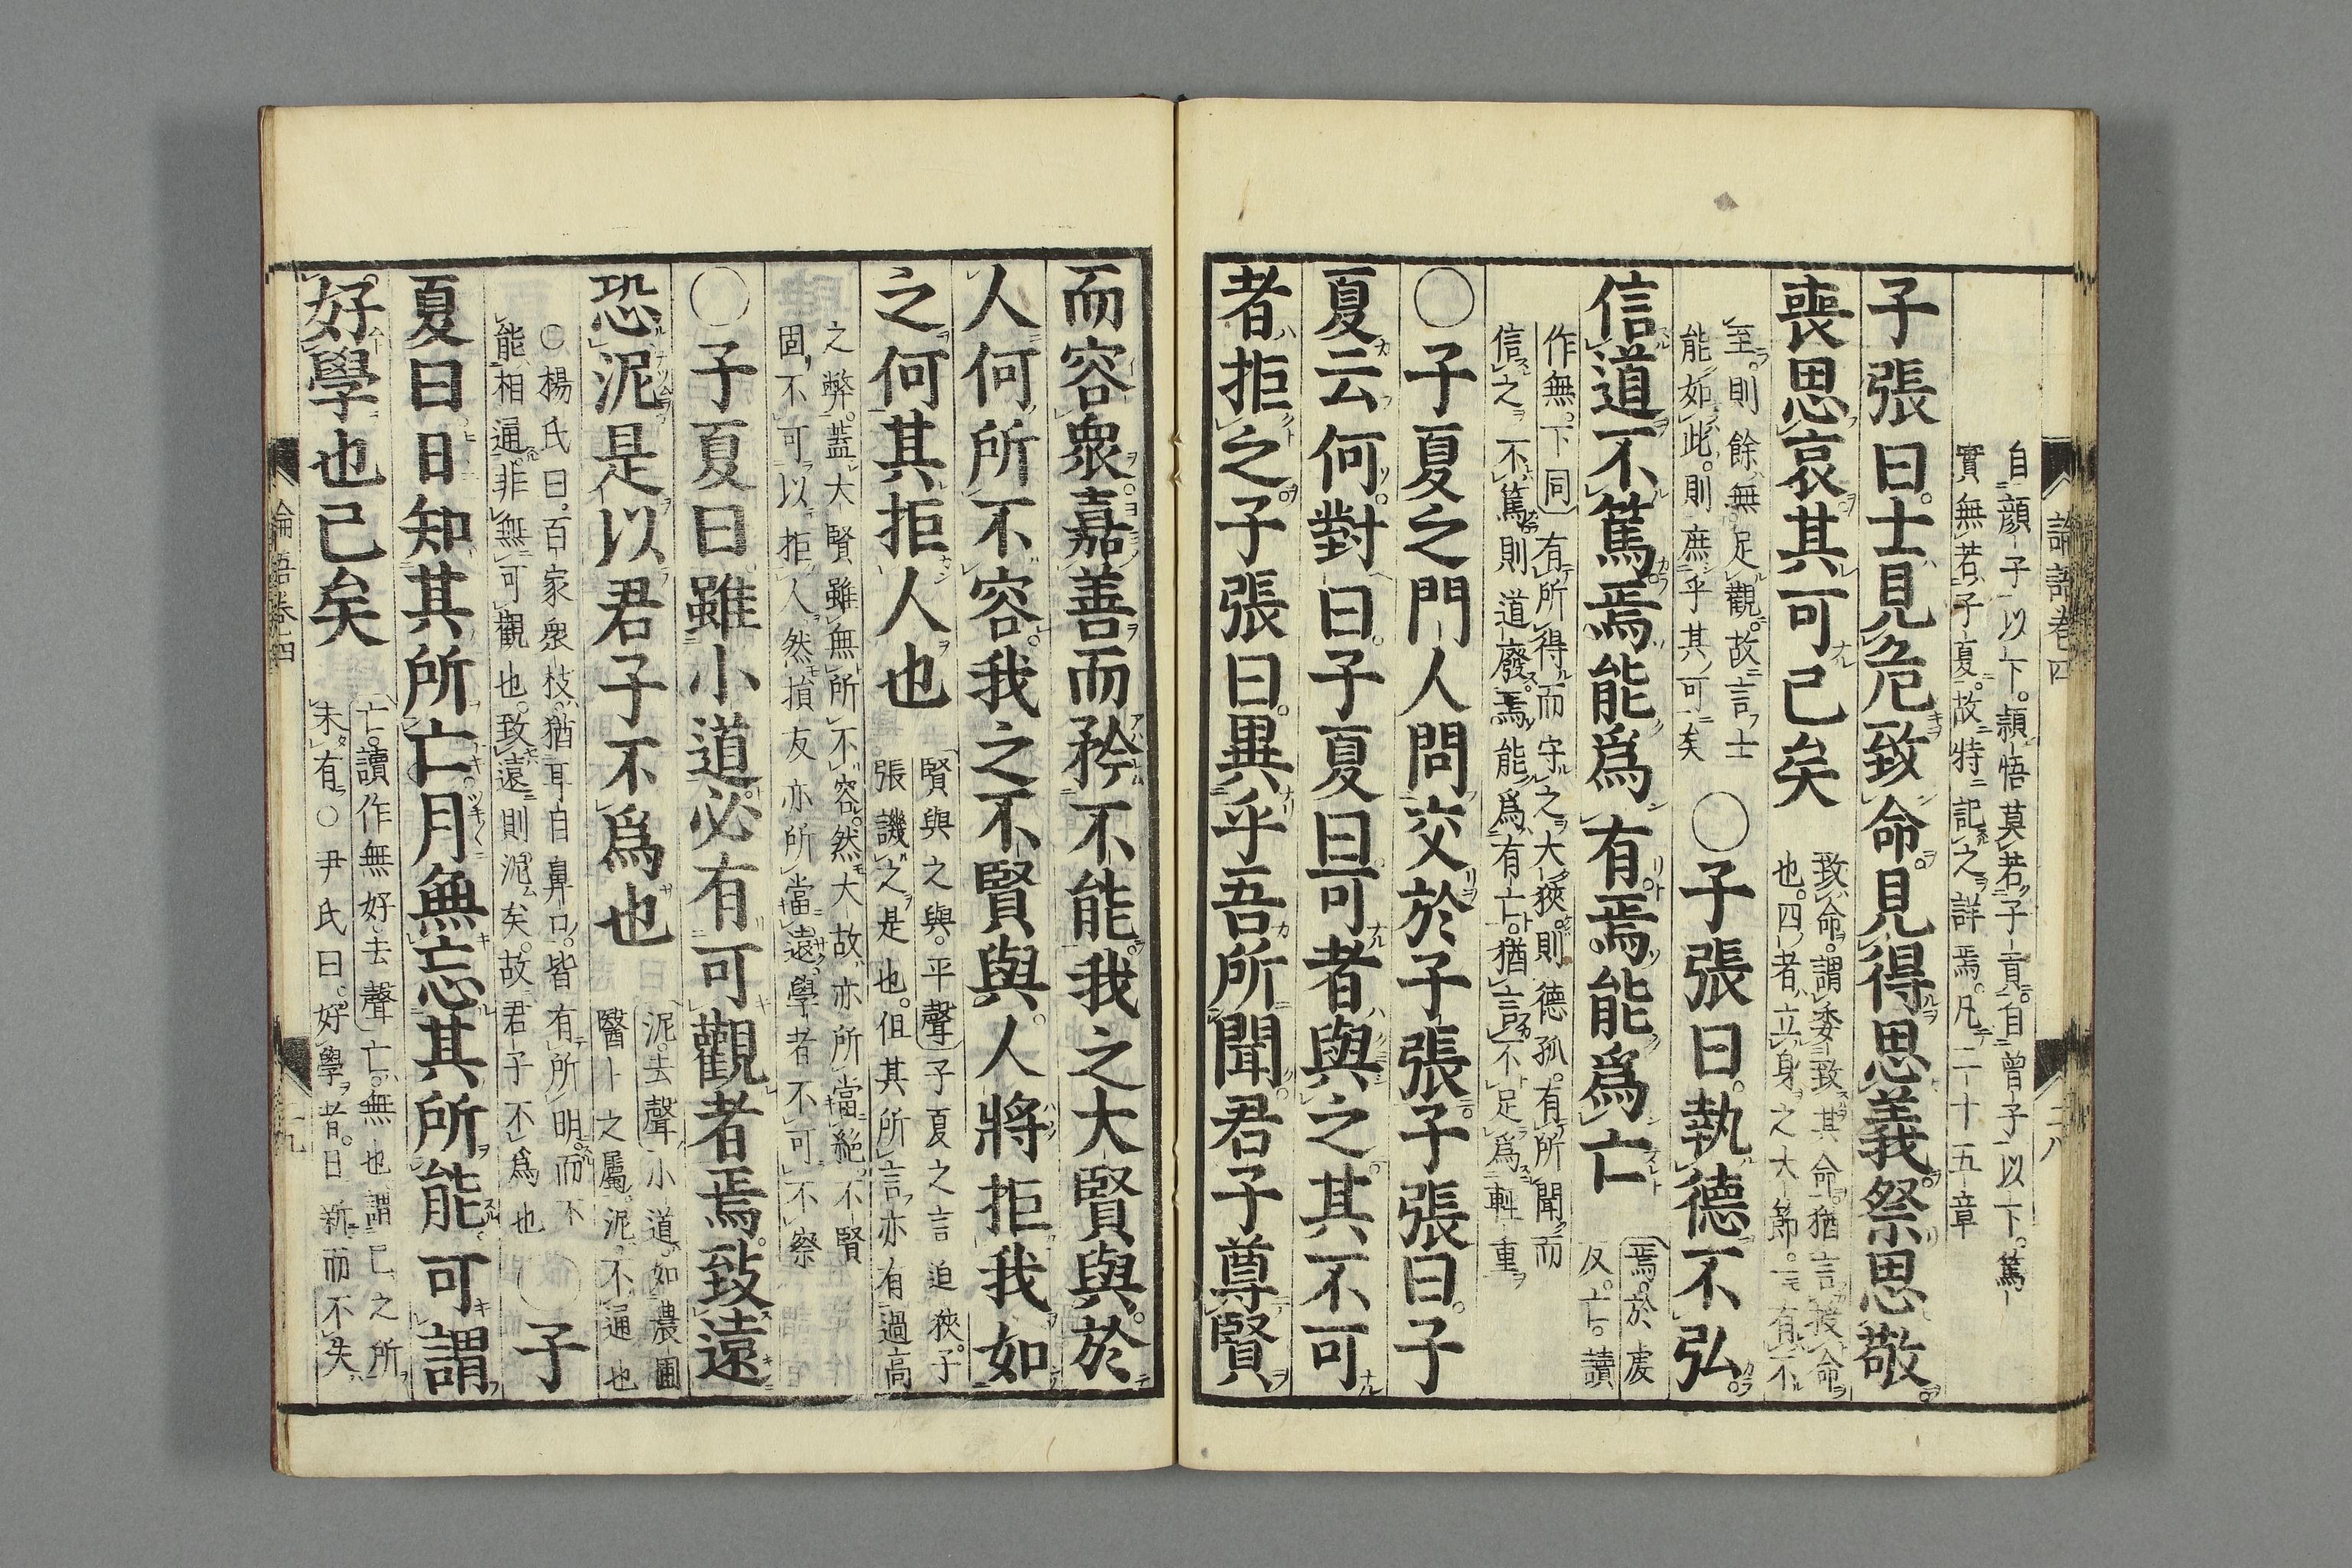 論語卷四
二八
自顏子以下。頴悟莫若子貢。自曾子以下。篤
實無若子夏。故特記之詳焉。凡二十五章
子張曰。士見危致命。見得思義。祭思敬。
喪思哀。其可已矣
致命。謂委致其命。猶言授命
也。四者立身之大節。一有不
至。則餘無足觀。故言士
能如此。則庶乎其可矣
○子張曰。執德不弘。
信道不篤。焉能爲有。焉能爲亡
焉。於虔
反。亡。讀
作無。下同
有所得而守之大狹。則德孤。有所聞而
信之不篤。則道廢。焉能爲有亡。猶言不足爲輕重
○子夏之門人問交於子張。子張曰。子
夏云何。對曰。子夏曰。可者與之。其不可
者拒之。子張曰。異乎吾所聞。君子尊賢
而容衆。嘉善而矜不能。我之大賢與。於
人何所不容。我之不賢與。人將拒我。如
之何其拒人也
賢與之與。平聲
子夏之言迫狹。子
張譏之是也。但其所言亦有過高
之弊。蓋大賢雖無所不容。然大故亦所當絕。不賢
固不可以拒人。然損友亦所當遠。學者不可不察
○子夏曰。雖小道必有可觀者焉。致遠
恐泥。是以君子不爲也
泥。去聲
小道。如農圃
醫卜之屬。泥。不通也
○楊氏曰。百家衆技。猶耳目鼻口。皆有所明。而不
能相通。非無可觀也。致遠則泥矣。故君子不爲也
○子
夏曰。日知其所亡。月無忘其所能。可謂
好學也已矣
亡。讀作無。好。去聲
亡。無也。謂己之所
未有。○尹氏曰。好學者。日新而不失
論語卷四
二九